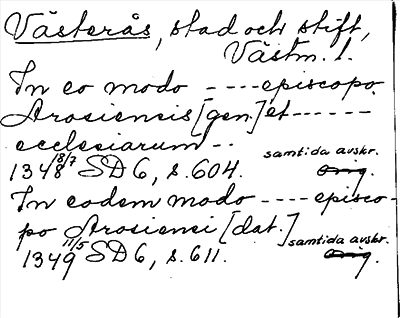 Västerås, stad och stift,
Västm. l.
In eo modo ---- episcopo
Arosiensis [gen.] et ------
ecclesiarum --
1348 18/7 SD 6, s. 604. samtida avskr. orig.
In eodem modo ---- episco-
po Arosiensi [dat.]
1349 11/5 SD 6, s. 611. samtida avskr. orig.